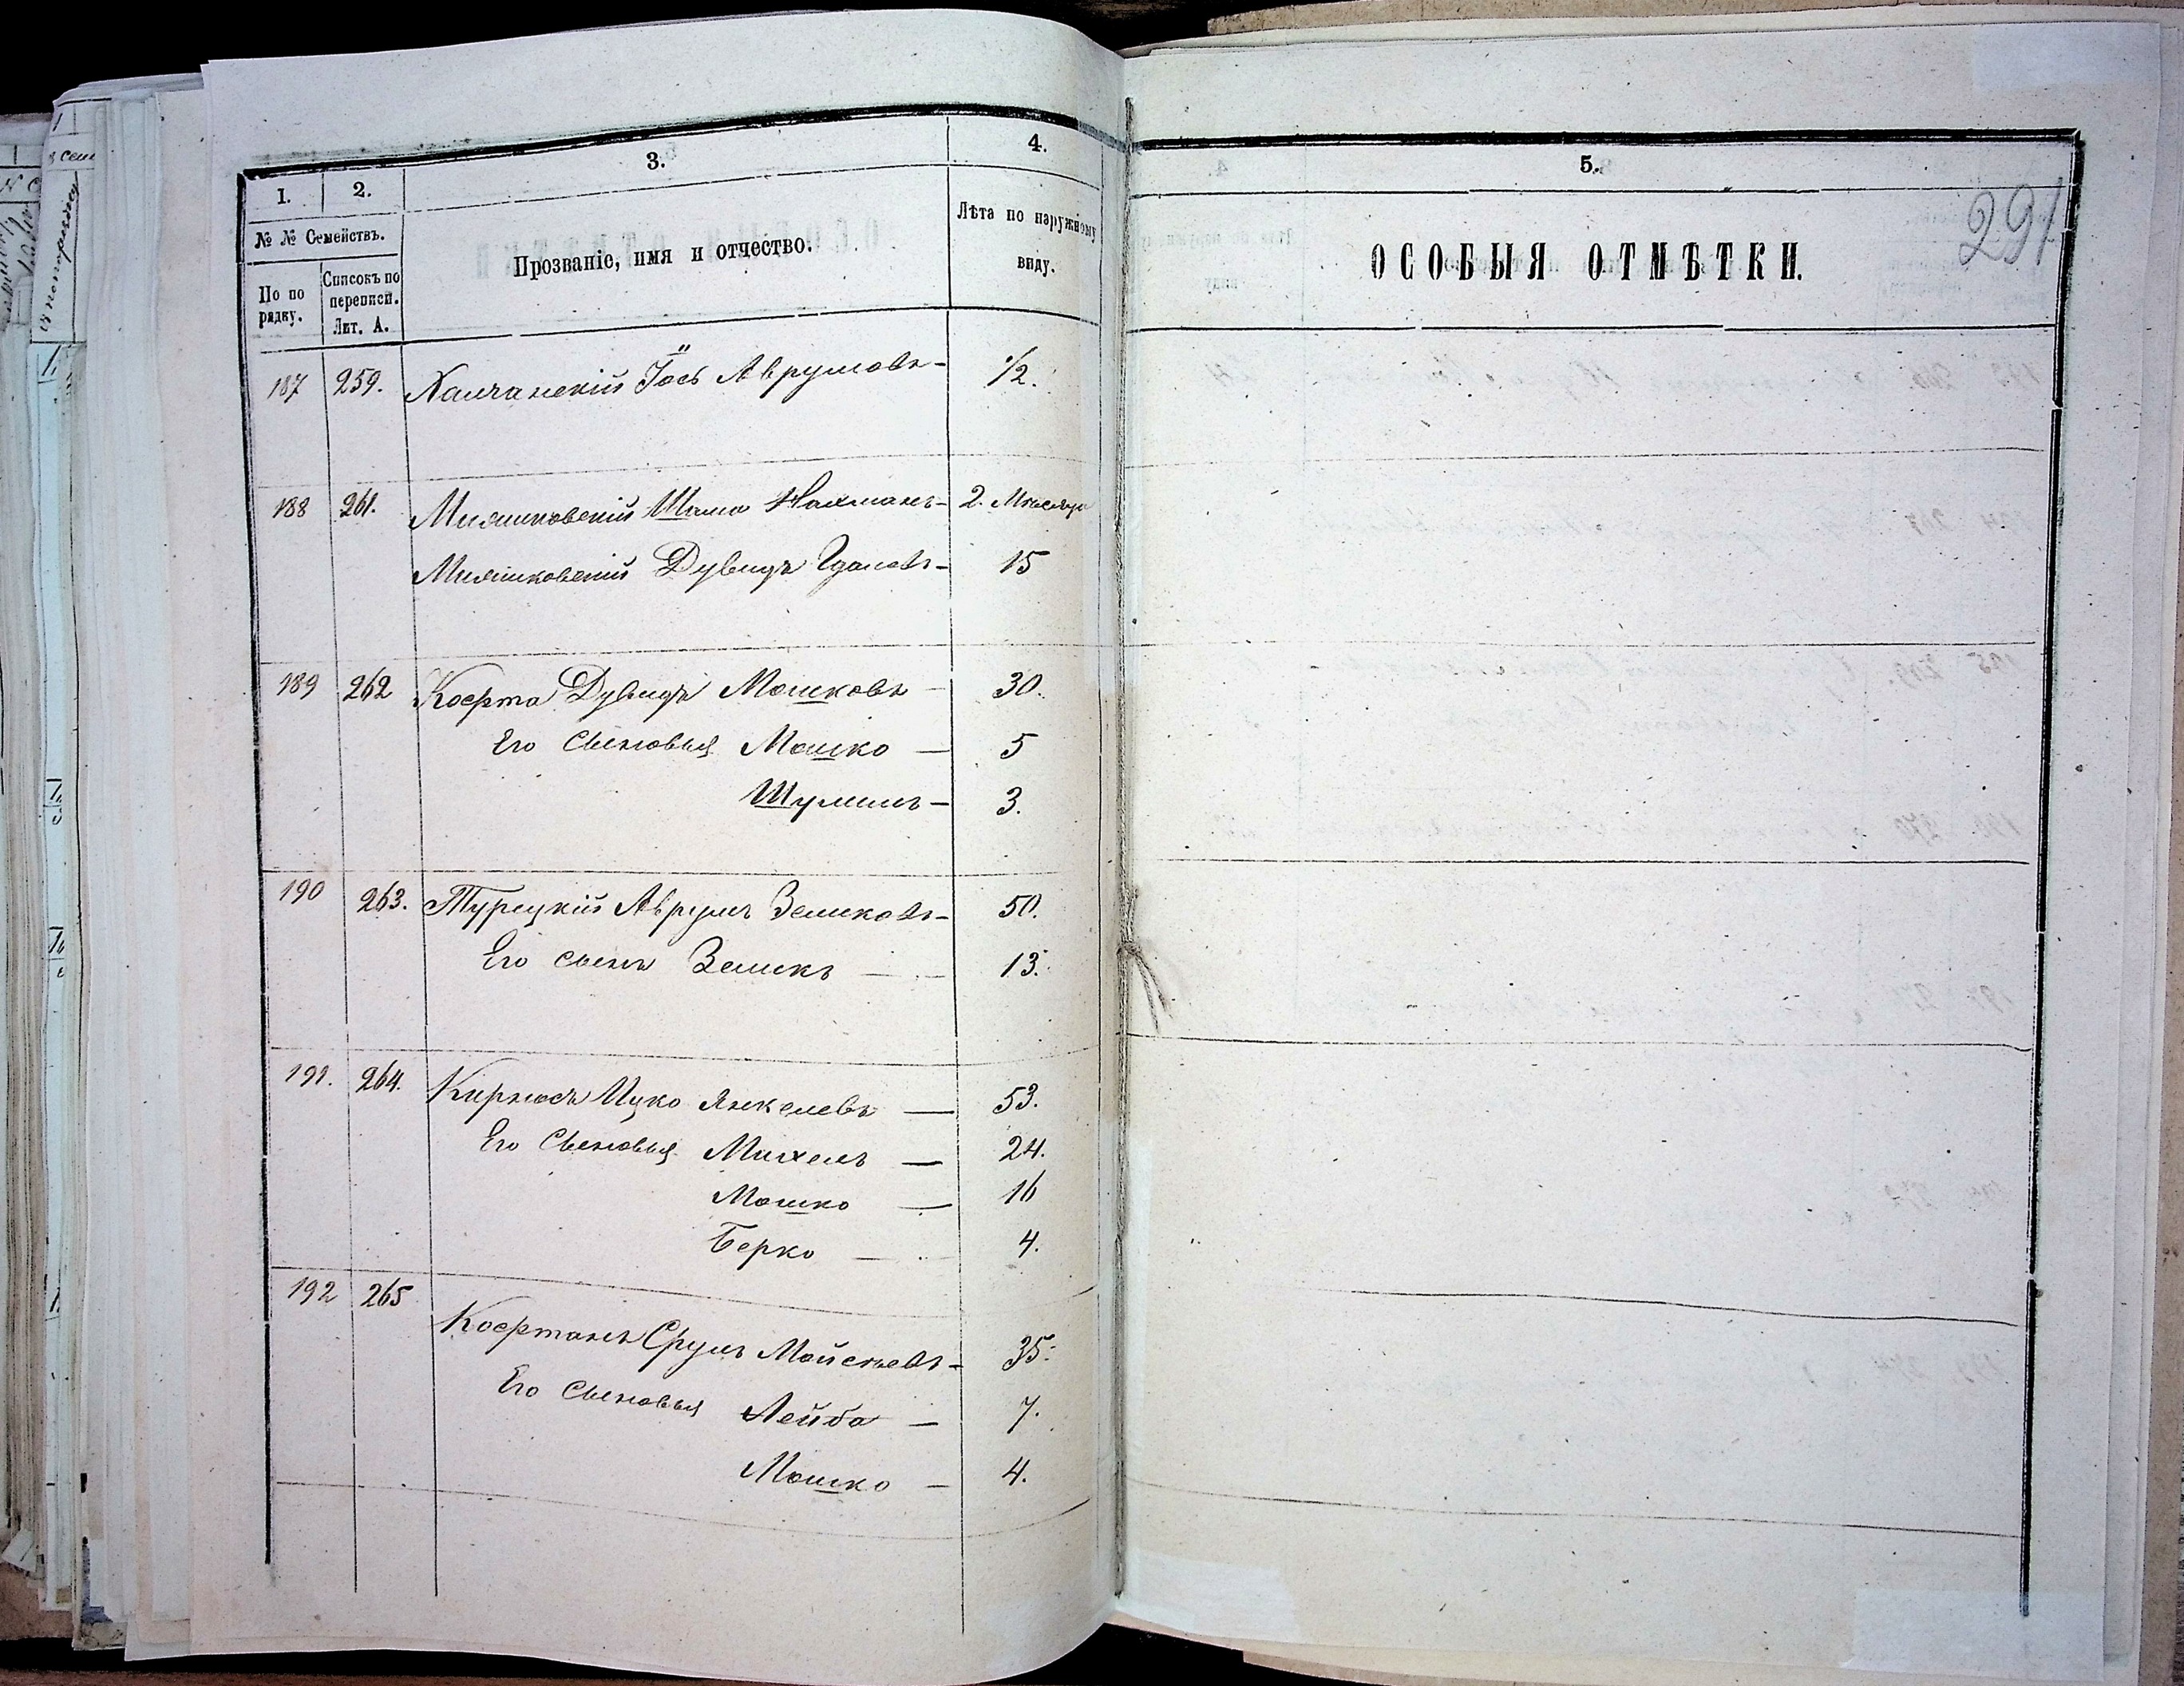 1. 2. 3. 4. 5.
№ № Семействъ.
По по рядку. Списокъ по переписи. Лит. А.
Прозваніе, имя и отчество.
Лѣта по наружному виду.
ОСОБЫЯ ОТМѢТКИ.
291
187 259. Халчанскій Іось Аврумовъ - 1/2.
188 261. Нахманъ - 2. Мѣсяца
Дувидъ - 15
189 262 Коерта Дувидъ Мошковъ - 30.
Его Сыновья Мошко — 5
Шулимъ - 3.
190 263. Турецкій Аврумъ Зеликовъ - 50.
Его сынъ Зеликъ — 13.
191. 264. Кирносъ Ицко Янкелевъ — 53.
Его Сыновья Михель — 24.
Мошко — 16
Берко — 4.
192 265
Коерманъ Сруль Мойсѣевъ - 35.
Его Сыновья Лейба — 7.
Мошко — 4.